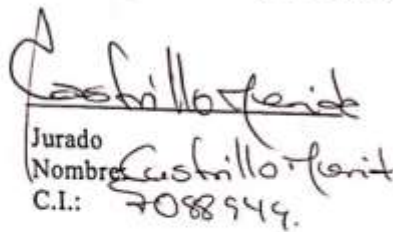 Castrillo Merida
Jurado
Nombre: Castrillo Merit
C.I.: 7088949.